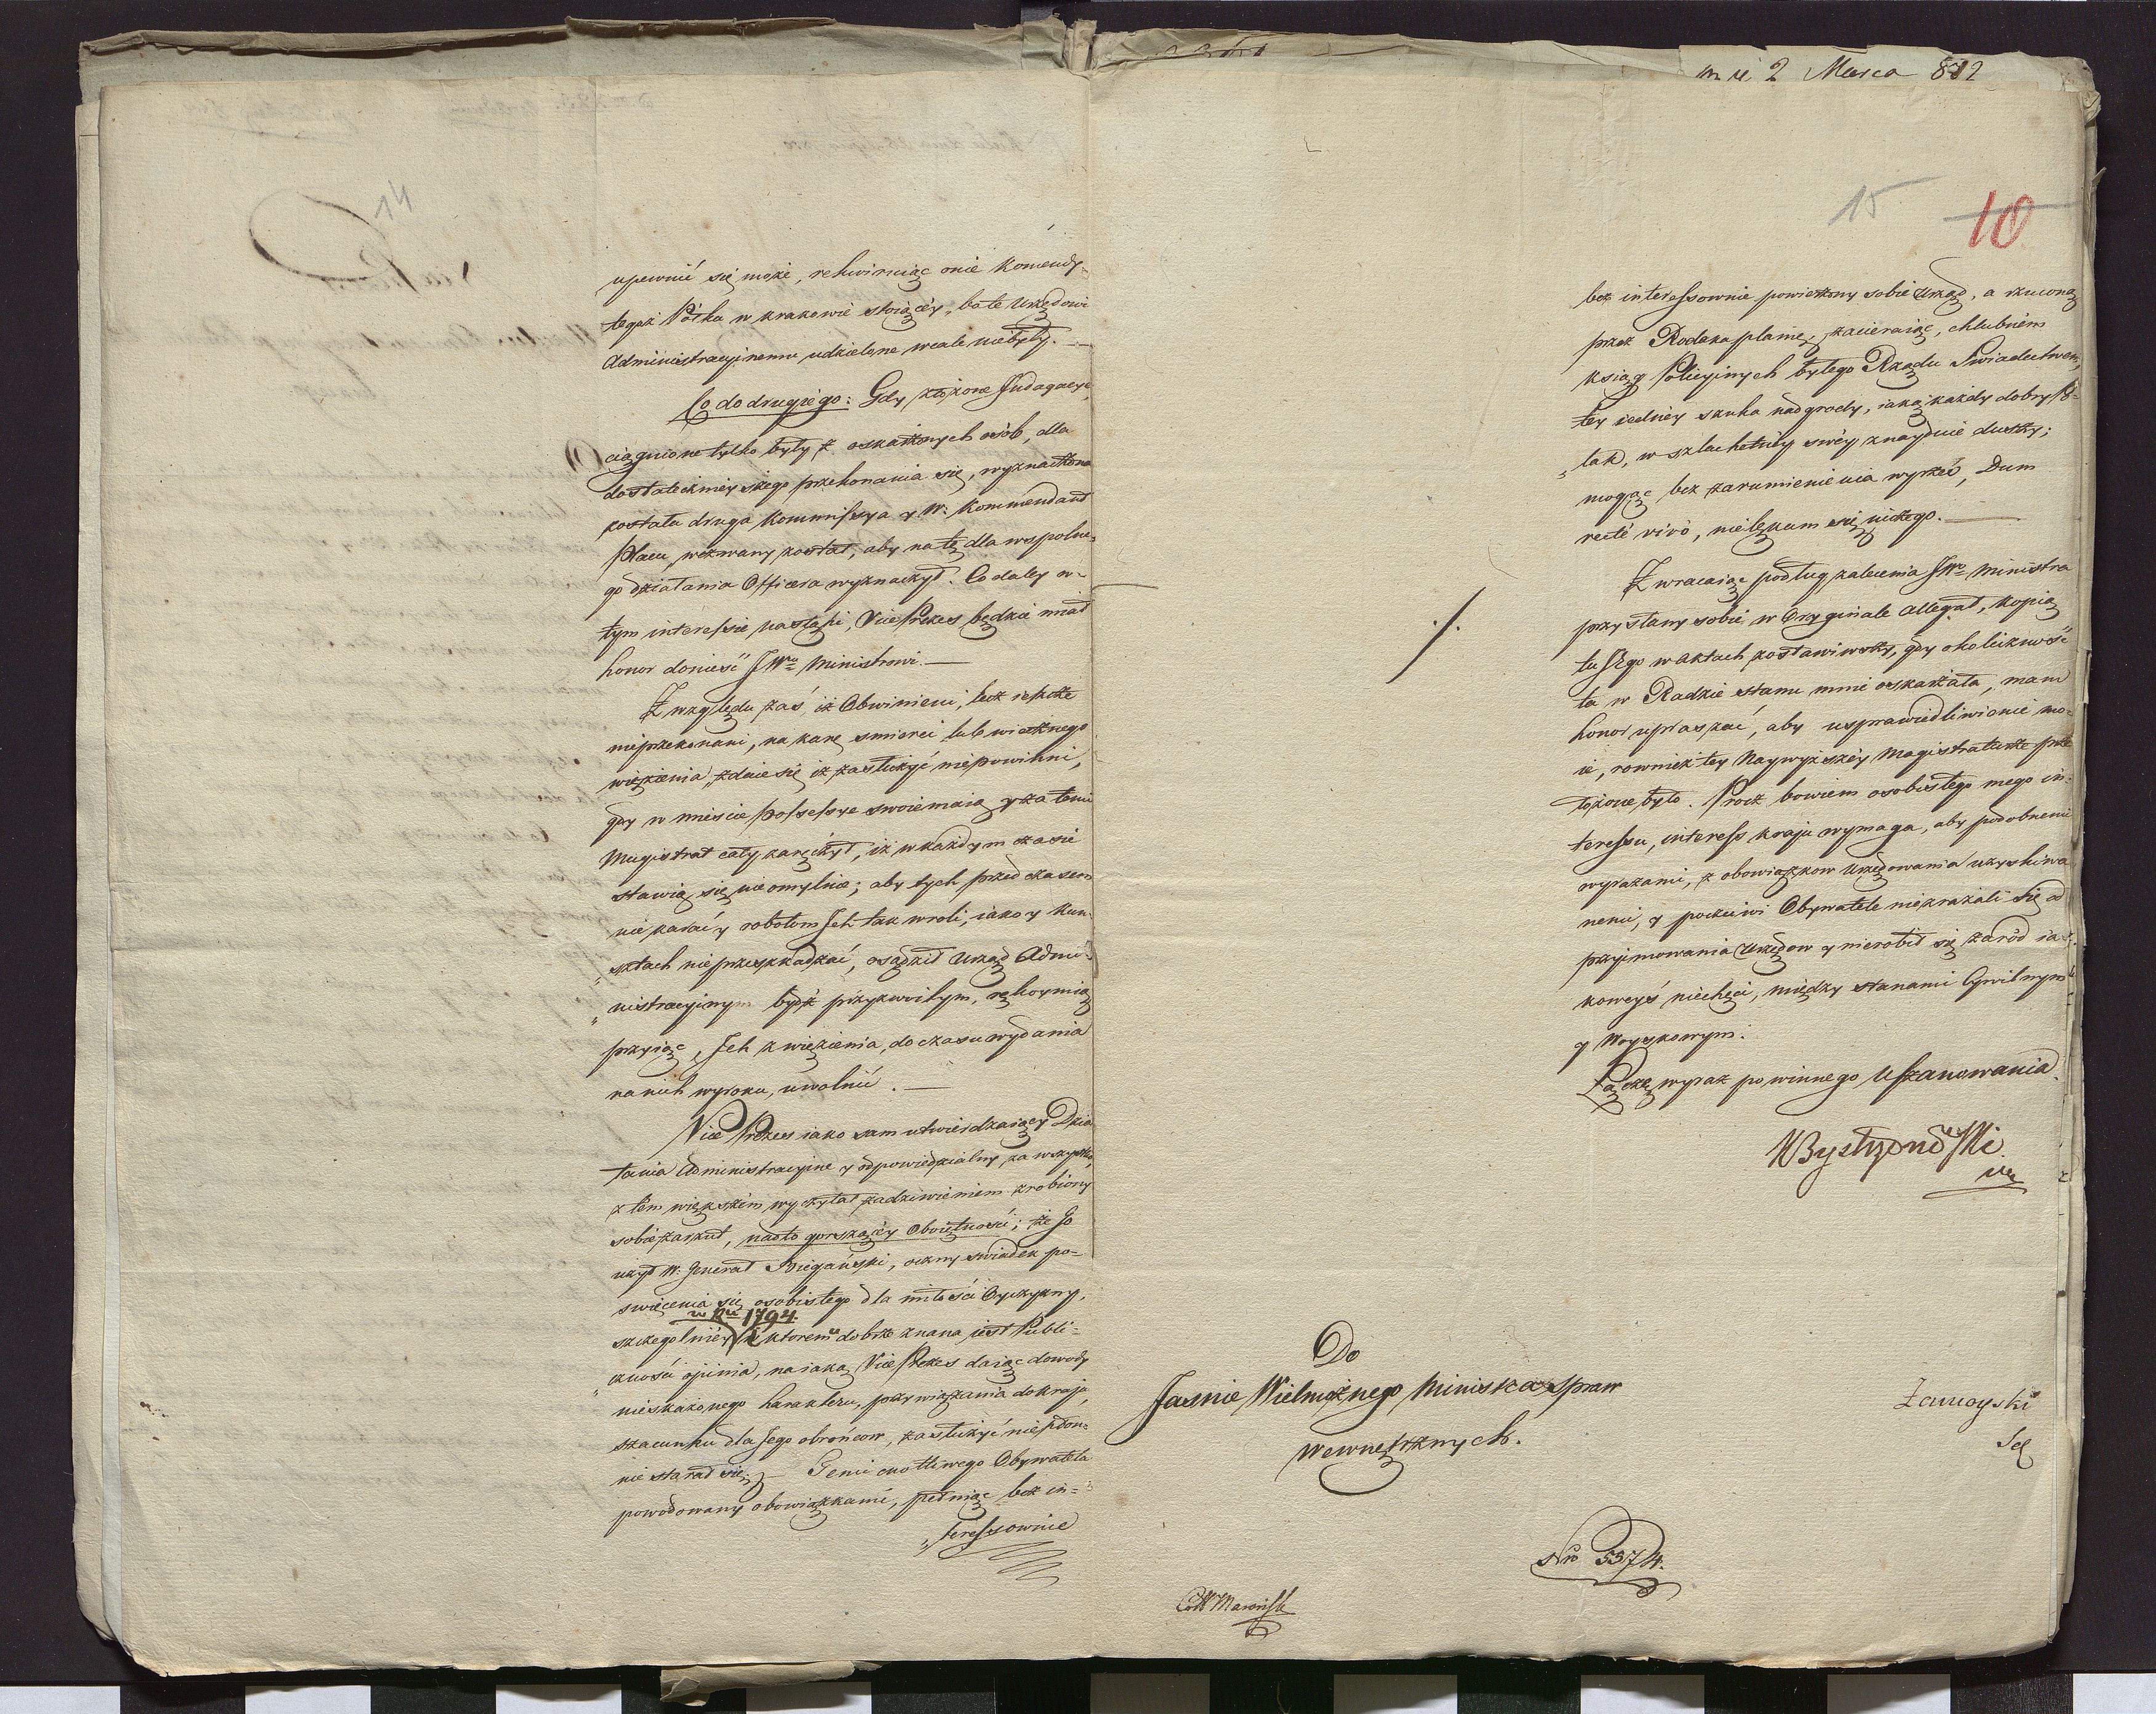 upewnić się może, rekwiruiąc onie Komendy
tegoż Pólku w Krakowie stoiącéy, bo te Urzędowi
Administracyjnemu udzielone wcale niebyły.
Co do drugiego: Gdy złożone Indagacye,
ciągnione tylko były z oskarżonych osób, dla
dostatecznieyszego przekonania się, wyznaczona
została druga Kommissya y W: Kommendant
Placu, wezwany został, aby na tę dla wspolne-
go działania Officera wyznaczył. Co daley w-
tym interessie nastąpi, Vice Prezes będzie miał
honor donieść JWu Ministrowi.
Z względu zaś, iż Obwinieni, lecz ieszcze
nieprzekonani, na karę smierci lub wiecznego
więzienia, zdaie się iż zasłużyć niepowinni,
gdy w mieście possessye swoie maią y za temi
Magistrat cały zaręczył, iż w każdym czasie
stawią się nieomylnie; aby tych przed czasem
nie karać y robotom Ich tak w roli, iako y Kun-
„sztach nieprzeszkadzać, osądził Urząd Admi-
„nistracyjnym bydź przyzwoitym, rękoymią
przyiąc, Ich z więzienia, do czasu wydania
na nich wyroku, uwolnić.
Vice Prezes iako sam utwierdzaiący Dzia
łania Administracyine y odpowiedzialny za wszystko,
z tem większem wyczytał zadziwieniem zrobiony
sobie zarzut, nadto gorszącéy Oboiętności; że Go
użył W. Generał Biegański, oczny swiadek po-
swięcenia się osobistego dla miłości Oyczyzny,
w Ru 1794.
szczegolniéy w ktorem dobrze znana jest Publi-
„czności opinia, na iaką Vice Prezes daiąc dowody
nieskażonego harakteru, przywiązania do kraju,
szacunku dla Jego obrońcow, zasłużyć niepłon-
nie starał się. Temi cnotliwego Obywatela
powodowany obowiązkami, pełniąc bez in-
„teressownie
14
m ca 2 Marca 812
15
10
bez interessownie powierzony sobie Urząd, a rzuconą
przez Rodaka plamę, zacieraiąc, chlubném
ksiąg Policyinych byłego Rządu Swiadectwem,
tey iedney szuka nadgrody, iaką każdy dobry Po-
„lak, w szlachetnéy swéy znayduie duszy;
mogąc bez zarumienienia wyrzec, Dum
recté vivo, nielękam się niczego.
Zwracaiąc podług zalecenia JWo Ministra
przysłany sobie w Oryginale Allegat, Kopią
tu Jego w Aktach zostawiwszy, gdy okoliczność
ta w Radzie stanu mnie oskarżała, mam
honor upraszać, aby usprawiedliwienie mo-
ie, rownież tey Naywyższéy Magistraturze prze
łożone było. Procz bowiem osobistego mego in-
teressu, interess kraju wymaga, aby podobnemi
wyrazami, z obowiązkow Urzędowania uzyskiwa
nemi, y poczciwi Obywatele niezrażali się od
przyimowania Urzędow y nierobił się zaród ia-
kowéyś niechęci, między stanami Cywilnym
y Woyskowym.
Łączę wyraz powinnego Uszanowania.
WBystrzonowski
./.
Do
Jasnie Wielmożnego Ministra Spraw
Wewnętrznych.
Zamoyski
Nro 5374.